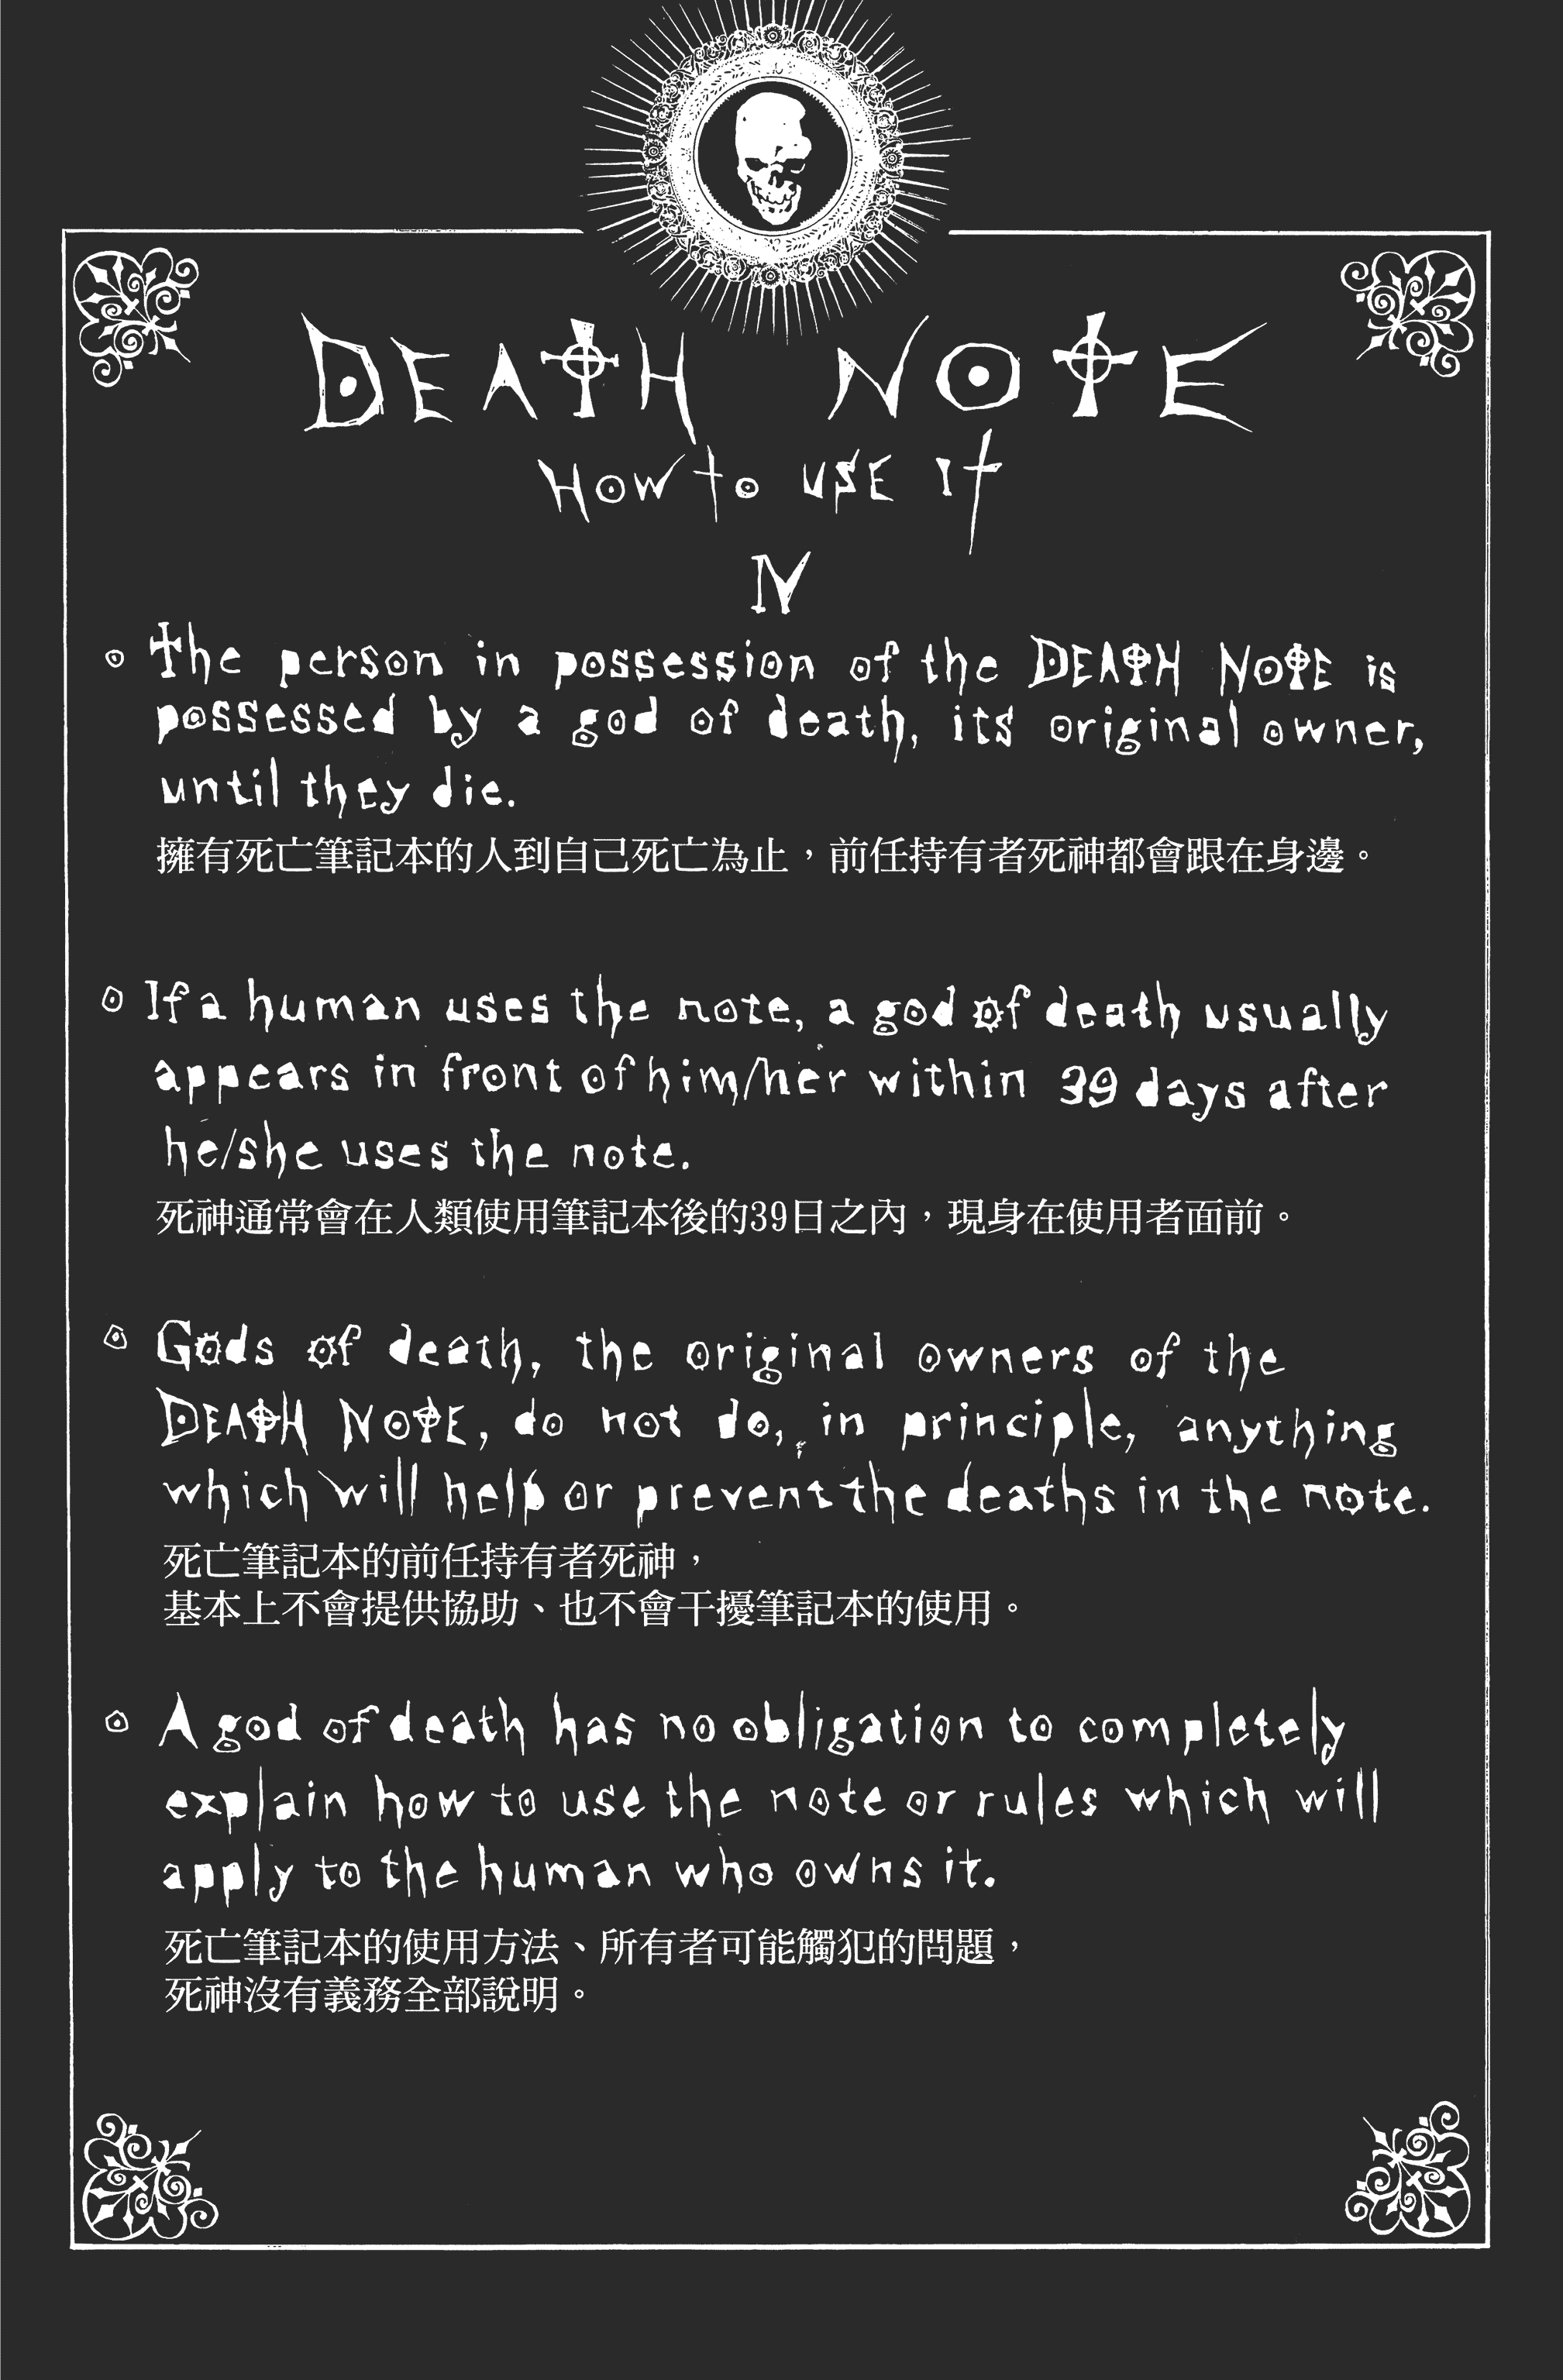 DEATH NOTE
How to use it
IV
The person in possession of the DEATH NOTE is
possessed by a god of death, its original owner,
until they die.
擁有死亡筆記本的人到自己死亡為止，前任持有者死神都會跟在身邊。
If a human uses the note, a god of death usually
appears in front of him/her within 39 days after
he/she uses the note.
死神通常會在人類使用筆記本後的39日之內，現身在使用者面前。
Gods of death, the original owners of the
DEATH NOTE, do not do, in principle, anything
which will help or prevent the deaths in the note.
死亡筆記本的前任持有者死神，
基本上不會提供協助、也不會干擾筆記本的使用。
A god of death has no obligation to completely
explain how to use the note or rules which will
apply to the human who owns it.
死亡筆記本的使用方法、所有者可能觸犯的問題，
死神沒有義務全部說明。